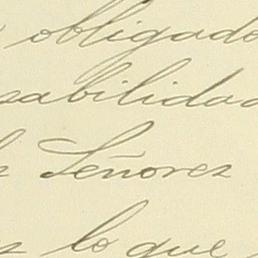 obligado
sabilidad
Señores
lo que